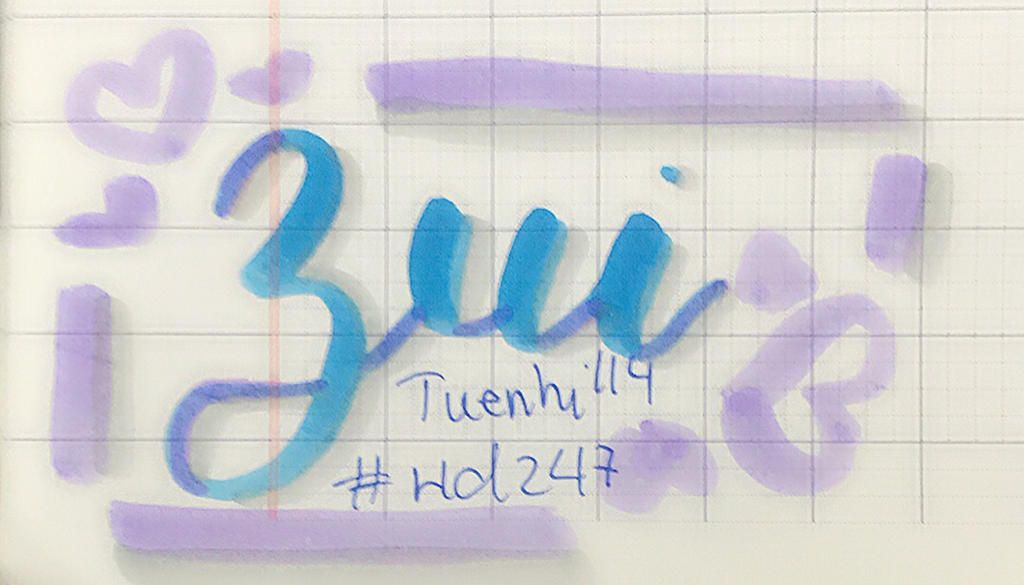 Zui
Tuenhi1119
#wd247